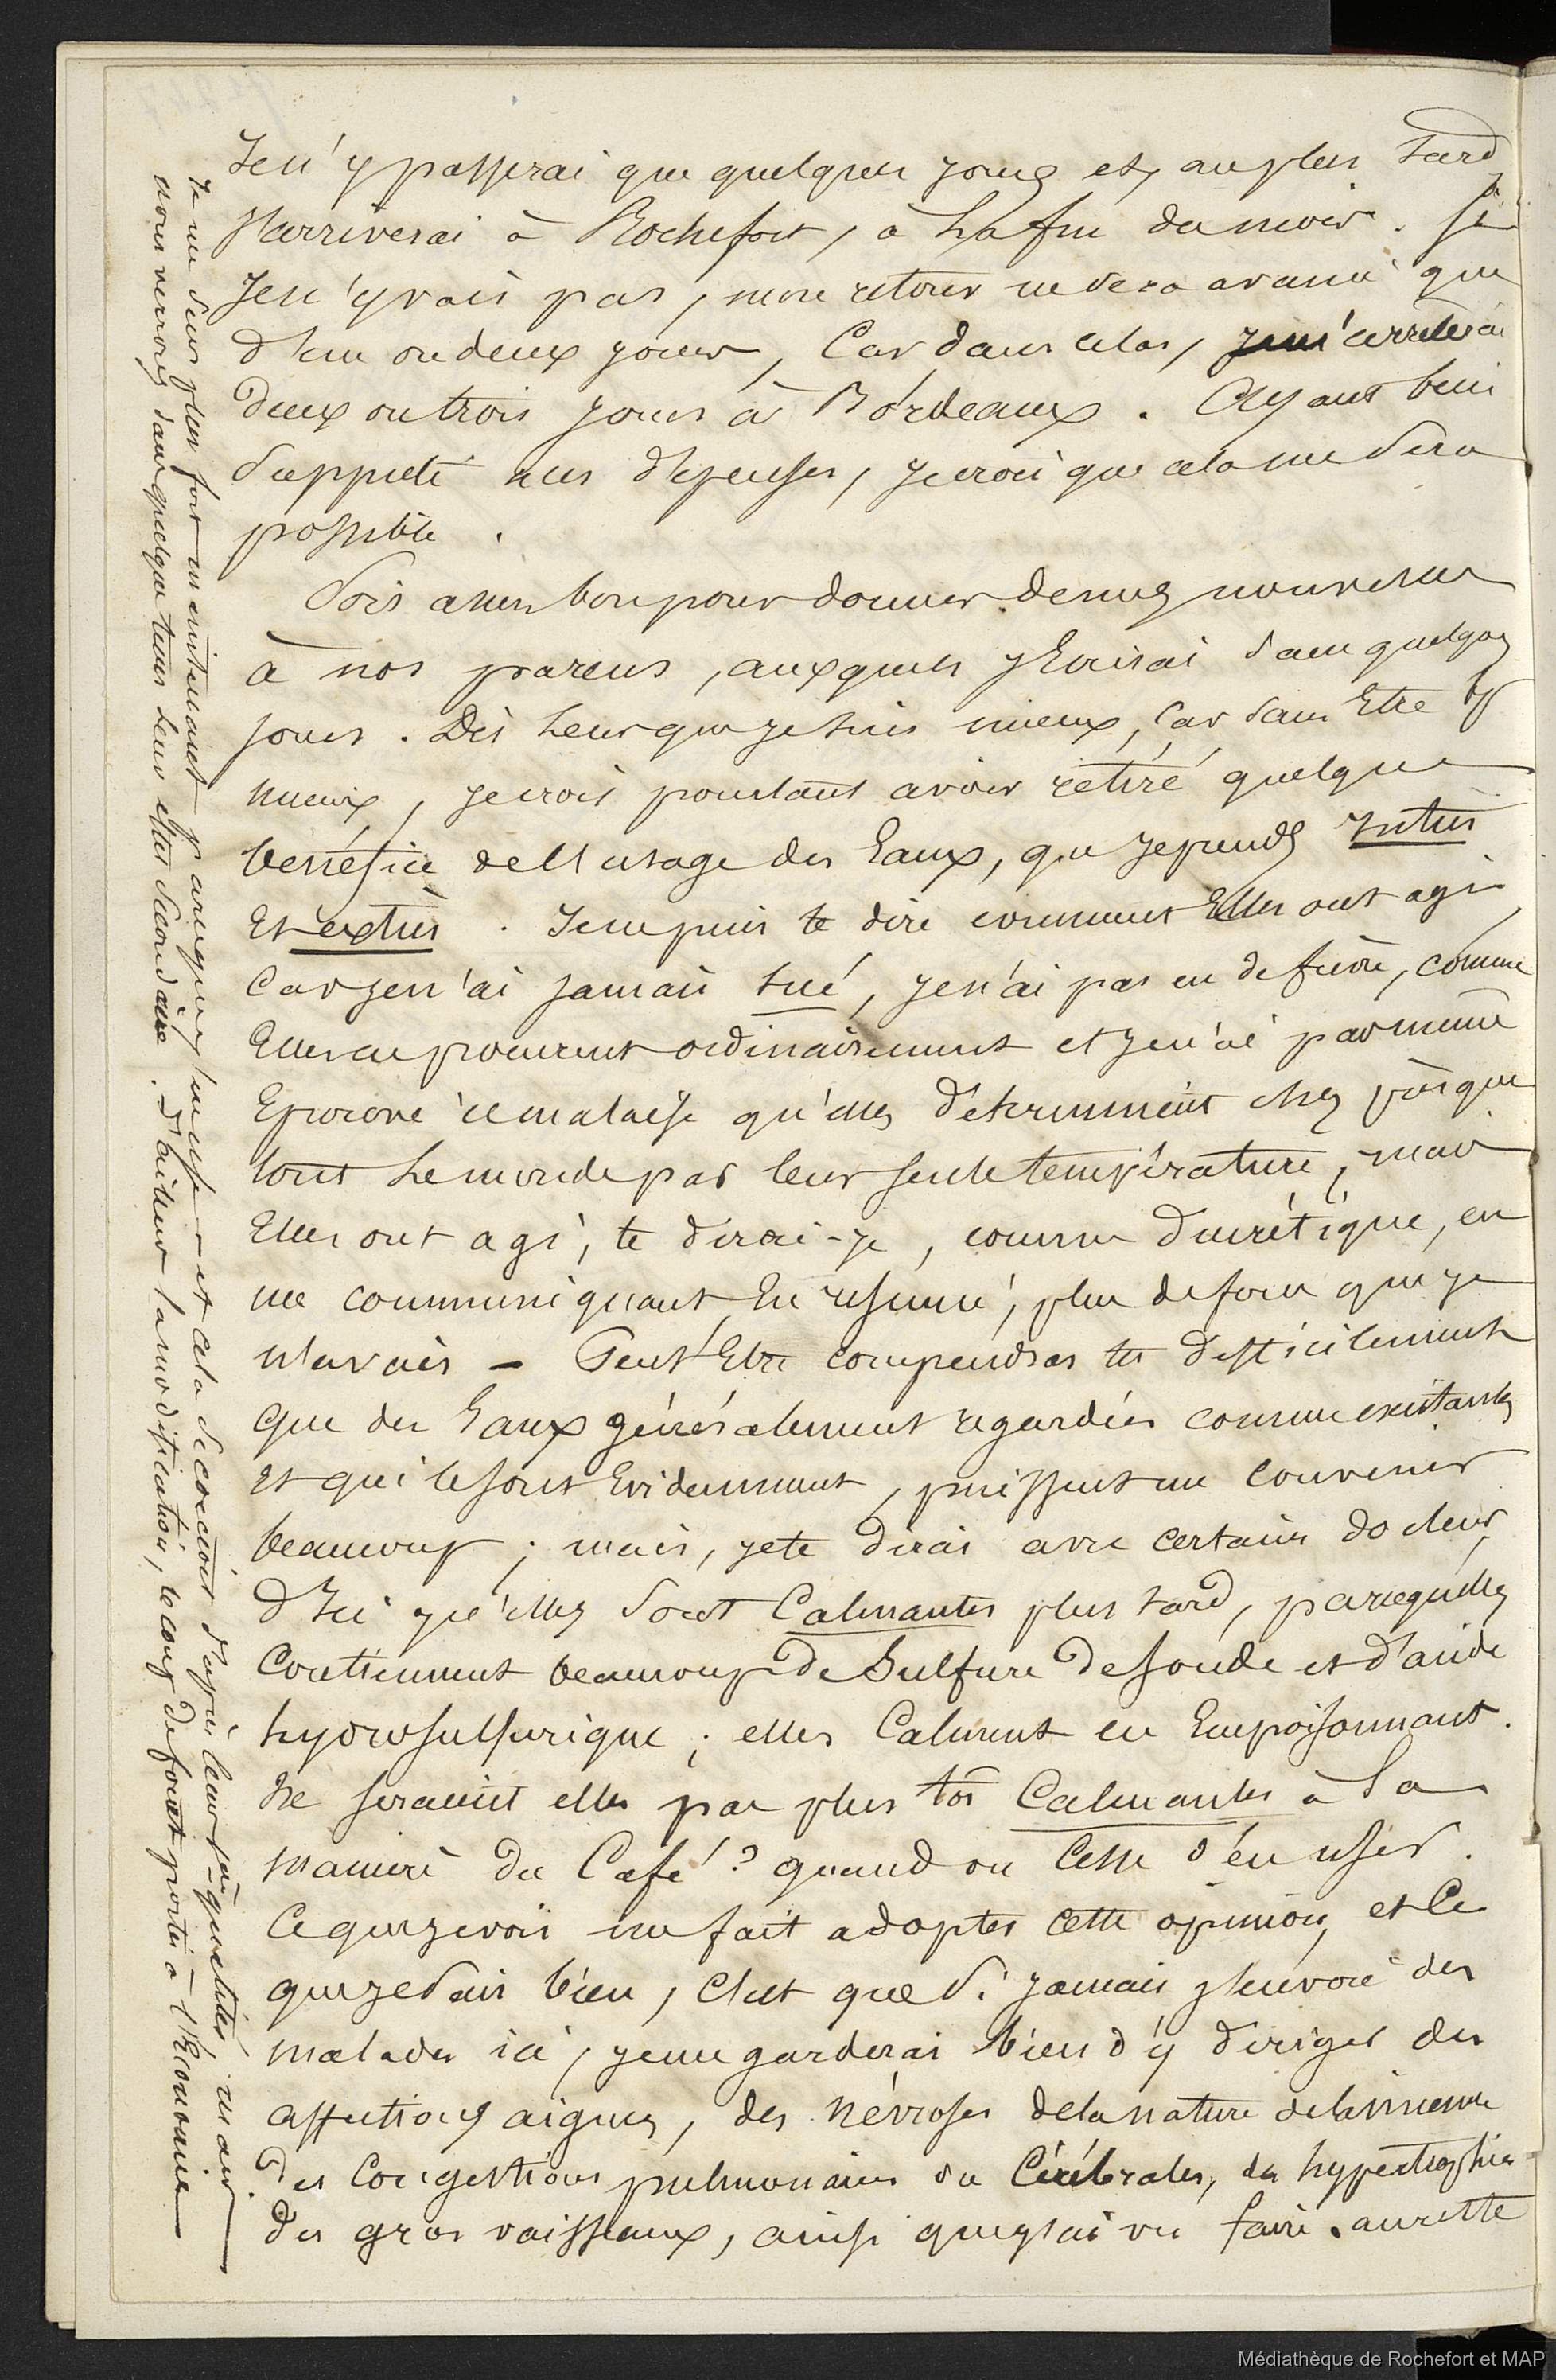 Je n'y passerai que quelques jours et, au plus tard
j'arriverai à Rochefort, à la fin du mois. Si
Je n'y vais pas, mon retour ne sera avancé que
d'un ou deux jours, Car dans ce cas, je m'arrêterai
deux ou trois jours à Bordeaux. Ayant bien
supputé mes dépenses, je crois que cela me sera
possible.
Sois assez bon pour donner de mes nouvelles
à nos parens, auxquels j'Ecrirai dans quelques
jours. Dis leur que je suis mieux, Car sans Etre
mieux, je crois pourtant avoir retiré quelque
bénéfice de l'usage des Eaux, que je prends Intus
Et extus. Je ne puis te dire comment Elles ont agi,
Car je n'ai jamais sué, je n'ai pas eu de fièvre, comme
Elles en procurent ordinairement et je n'ai pas même
Eprouvé ce malaise qu'elles déterminent chez presque
tout le monde par leur seule température, mais
Elles ont agi, te dirai-je, comme diurétique, en
me communiquant, En résumé, plus de force que je
n'avais - Peut Etre comprendras tu difficilement
que des Eaux généralement regardées comme excitantes
Et qui le sont Evidemment, puissent me convenir
beaucoup; mais, je te dirai avec certains docteurs
d'Ici qu'elles sont Calmantes plus tard, parcequ'elles
Contiennent beaucoup de Sulfure de soude et d'acide
hydrosulfurique; elles Calment en Empoisonnant.
Ne seraient elles pas plus tôt Calmantes à la
manière du Café? quand on Cesse d'en user.
Ce que je vois me fait adopter cette opinion, et Ce
que je sais bien, C'est que si jamais j'envoie des
malades ici, je me garderai bien d'y diriger des
affections aigues, des névroses de la nature de la mienne
des Congestions pulmonaires ou Cérébrales, des hypertrophies
des gros vaisseaux, ainsi que j'ai vu faire. aureste
Je me sens plus fort maintenant parceque j'en use - et cela se concevoir d'après leurs qualités, mais
nous verrons dans quelque tems leur effet secondaire. D'ailleurs la modification, le coup de fouet portés à l'Economie